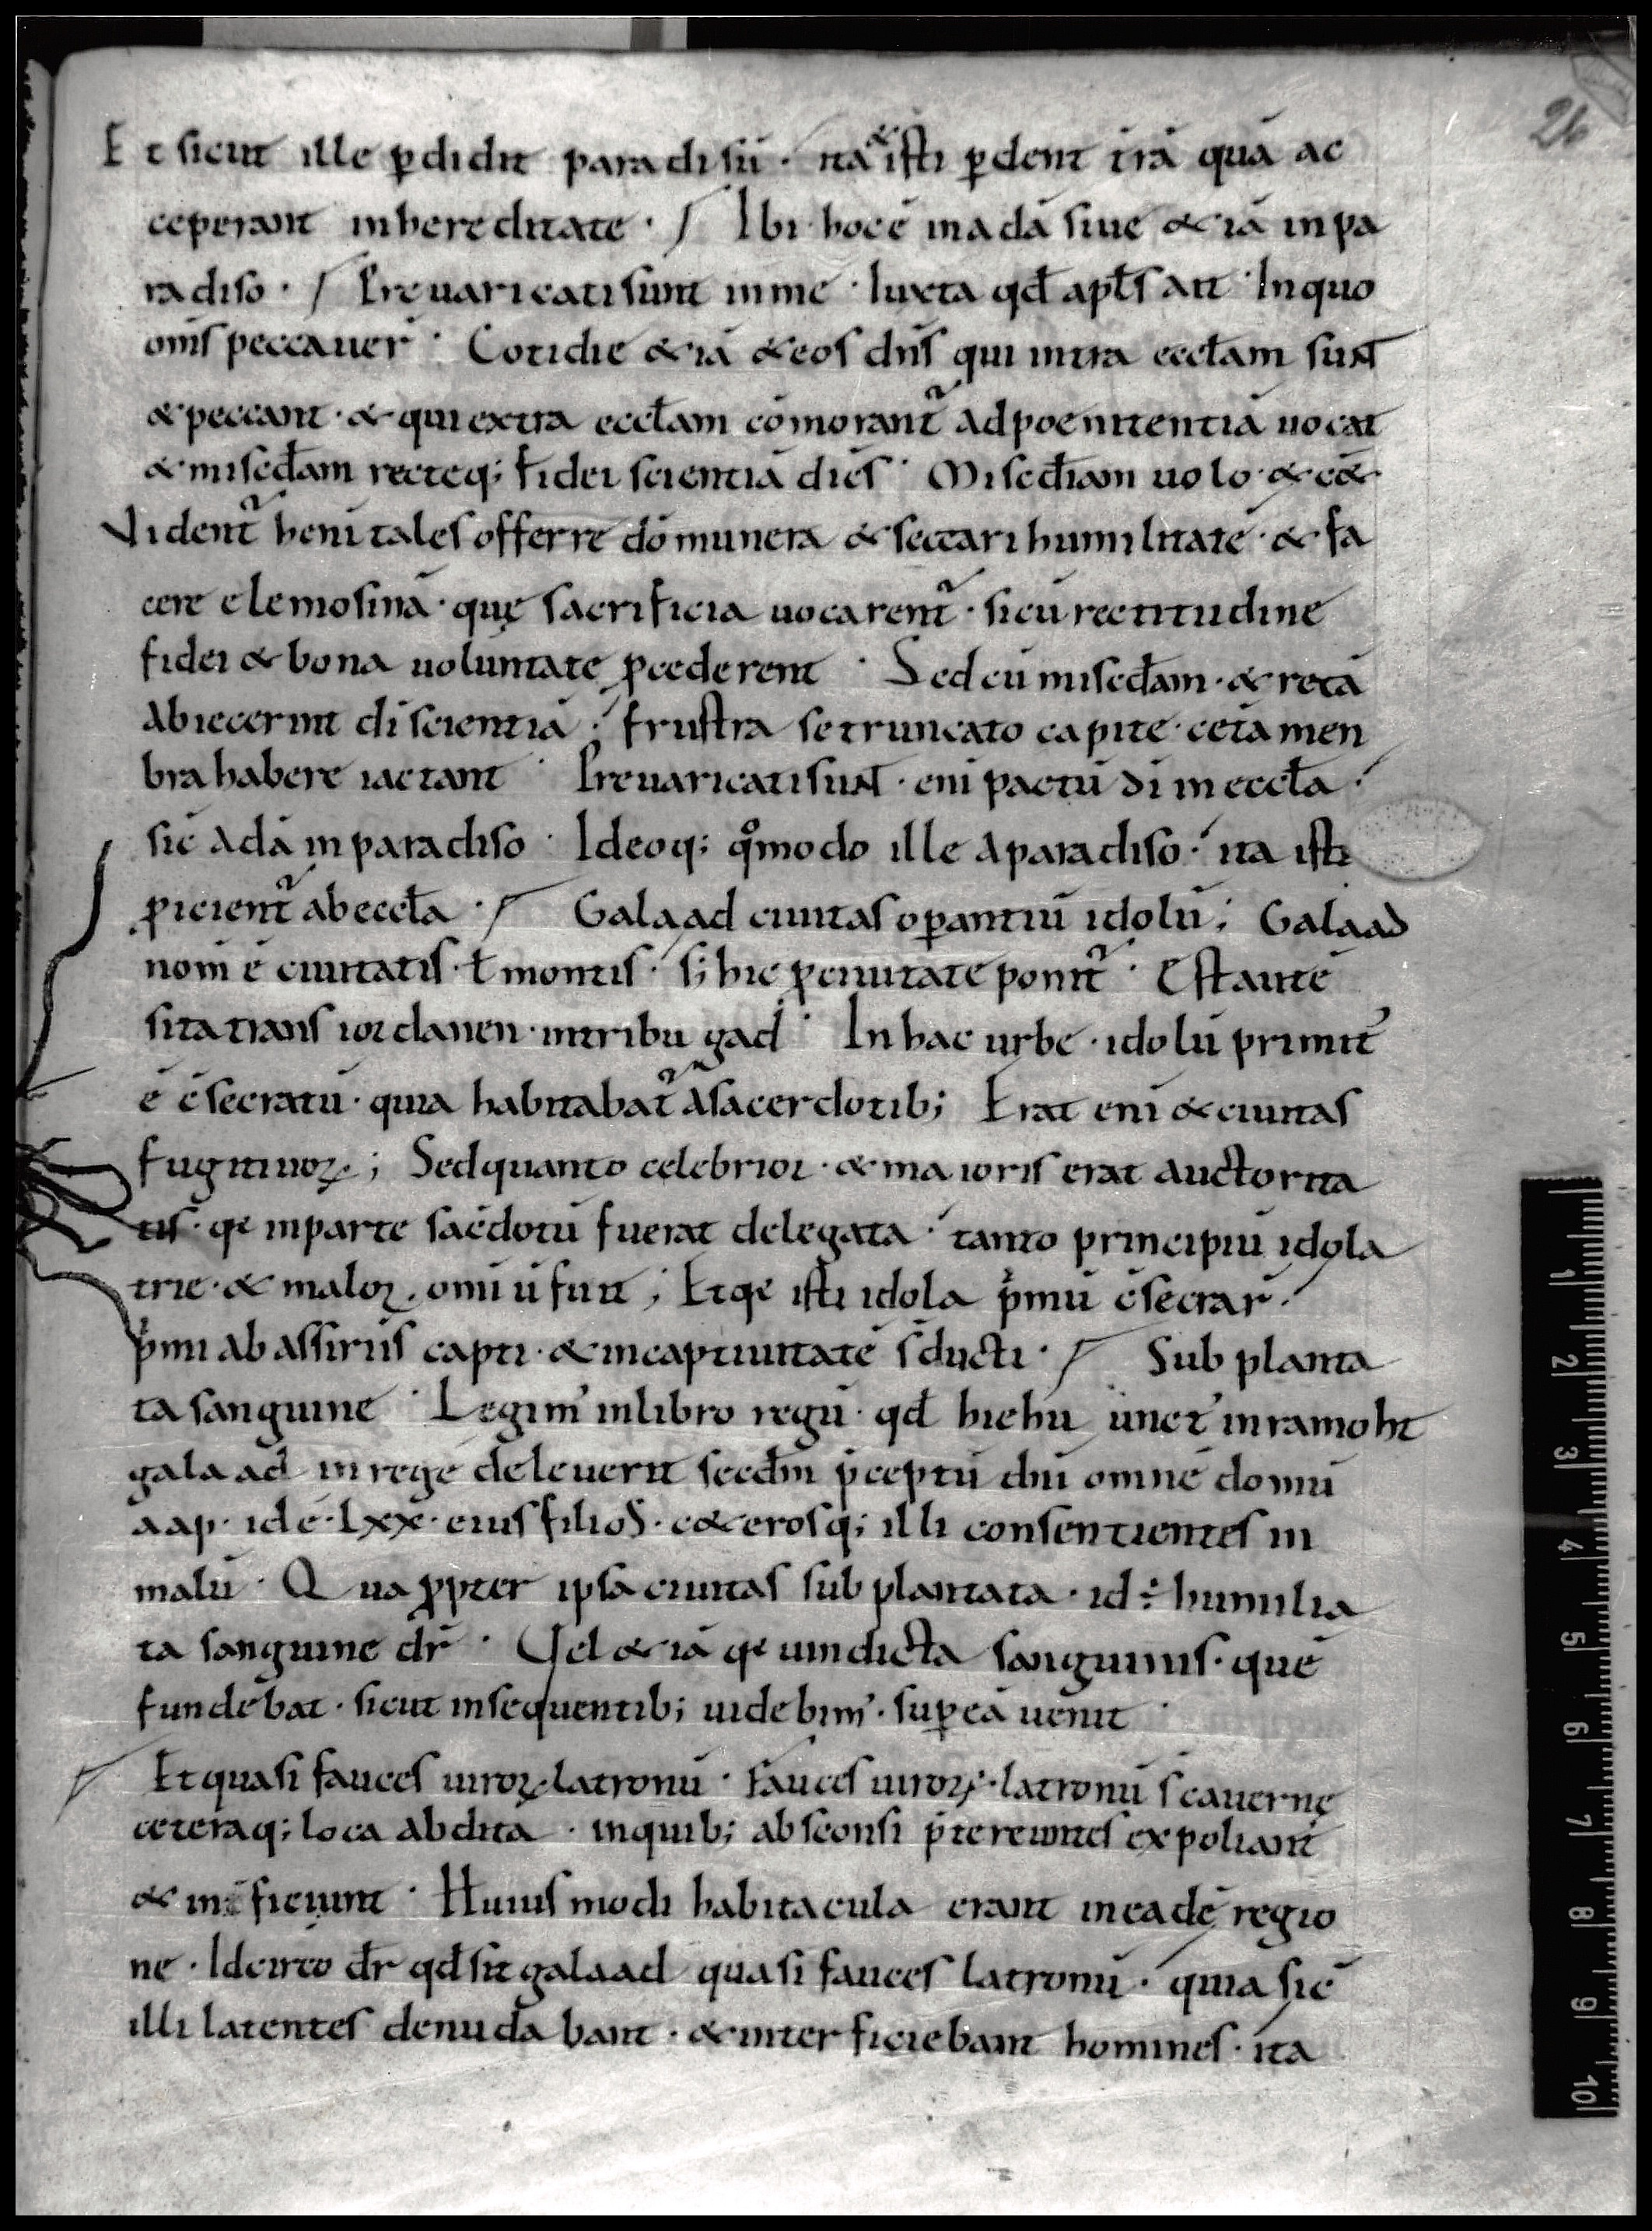 26
Et sicut ille ꝑdidit paradisū · ita & isti ꝑdent t̄rā quā ac
ceperant inhereditate · / Ibi hoc ē in adā siue &iā inpa
radiso · / Preuaricati sunt inme · Iuxta qđ apłs ait · Inquo
om̄s peccauer̄ · Cotidie &iā &eos dn̄s qui intra eccłam sunt
& peccant · & qui extra eccłam cōmorant᷑ adpoenitentiā uocat
& misedam recteq; fidei scientiā dic̄s · Misedīam uolo · & c&
Vident᷑ heni tales offerre dō munera & sectari humilitatē · & fa
cere elemosinā · quę sacrificia uocarent᷑ · si cū rectitudine
fidei & bona uoluntate ꝓcederent · Sed cū misedam · & rectā
abiecerint dī scientiā · frustra se truncato capite · cetā men
bra habere iactant · Preuaricati sunt · enī pactū dī in eccła ·
sic̄ adā in paradiso · Ideoq; qͦmodo ille a paradiso · ita isti
ꝓicient᷑ ab eccła · / Galaad ciuitas oꝑantiū idolū ; Galaad
nom̄ ē ciuitatis · ł montis · s; hic ꝓ ciuitate ponit᷑ · Est autē
sita trans iordanen · intribu gad · In hac urbe · idolū primit᾽
ē c̄secratū · quia habitabat᷑ a sacerdotib; Erat enī & ciuitas
fugitiuoꝝ ; Sed quanto celebrior · & maioris erat auctorita
tis · qͥ inparte sac̄dotū fuerat delegata · tanto principiū idola
trie · & maloꝝ omiū fuit ; Et qͥ isti idola pͥmū c̄secrar̄ ·
pͥmi ab assiriis capti · & incaptiuitatē s̄ ducti · / Sub planta
ta sanguine · Legim᾽ inlibro regū · qđ hiehu unct᾽ in ramoht
galaad in regē deleuerit secdm̄ p̄ceptū dnī omnē domū
aap · id ē · lxx · eius filios · c&erosq; illi consentientes in
malū · Qua ꝓpter ipsa ciuitas sub plantata · id ÷ humilia
ta sanguine dr̄ · Uel &iā qͥ uindicta sanguinis · quē
fundebat · sicut insequentib; uidebim᾽ · suꝑ eā uenit ·
Et quasi fauces uiroꝝ latronū · Fauces uiroꝝ · latronū s̄ cauernę
ceteraq; loca abdita · inquib; absconsi p̄tereuntes expoliant
& int̄ficiunt · Huius modi habitacula erant in eadē regio
ne · Idcirco dr̄ qđ sit galaad quasi fauces latronū · quia sic̄
illi latentes denudabant · & inter ficiebant homines · ita
1
2
3
4
5
6
7
8
9
10